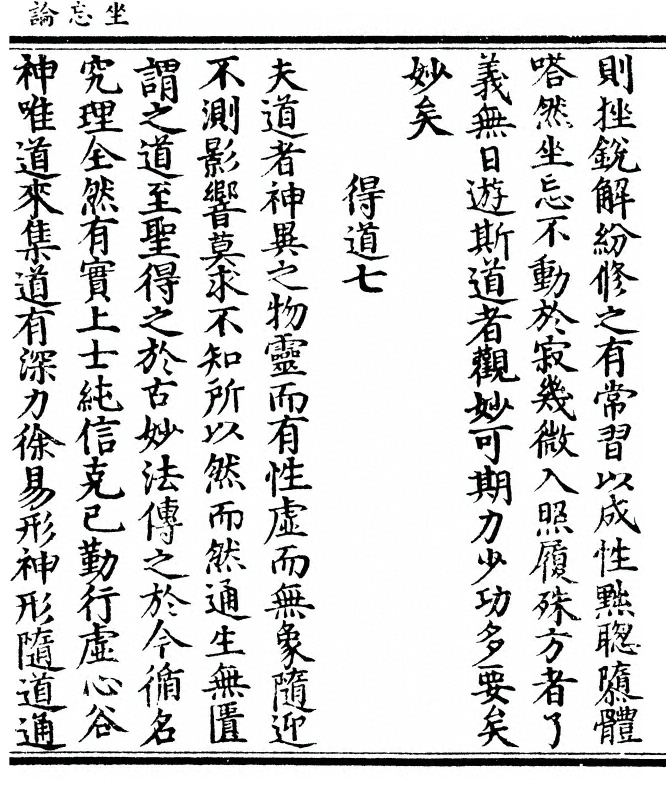 坐忘論
則挫銳解紛修之有常習以成性黜聰隳體
嗒然坐忘不動於寂幾微入照履殊方者了
義無日遊斯道者觀妙可期力少功多要矣
妙矣
得道七
夫道者神異之物靈而有性虛而無象隨迎
不測影響莫求不知所以然而然通生無匱
謂之道至聖得之於古妙法傳之於今循名
究理全然有實上士純信克已勤行虛心谷
神唯道來集道有深力徐易形神形隨道通